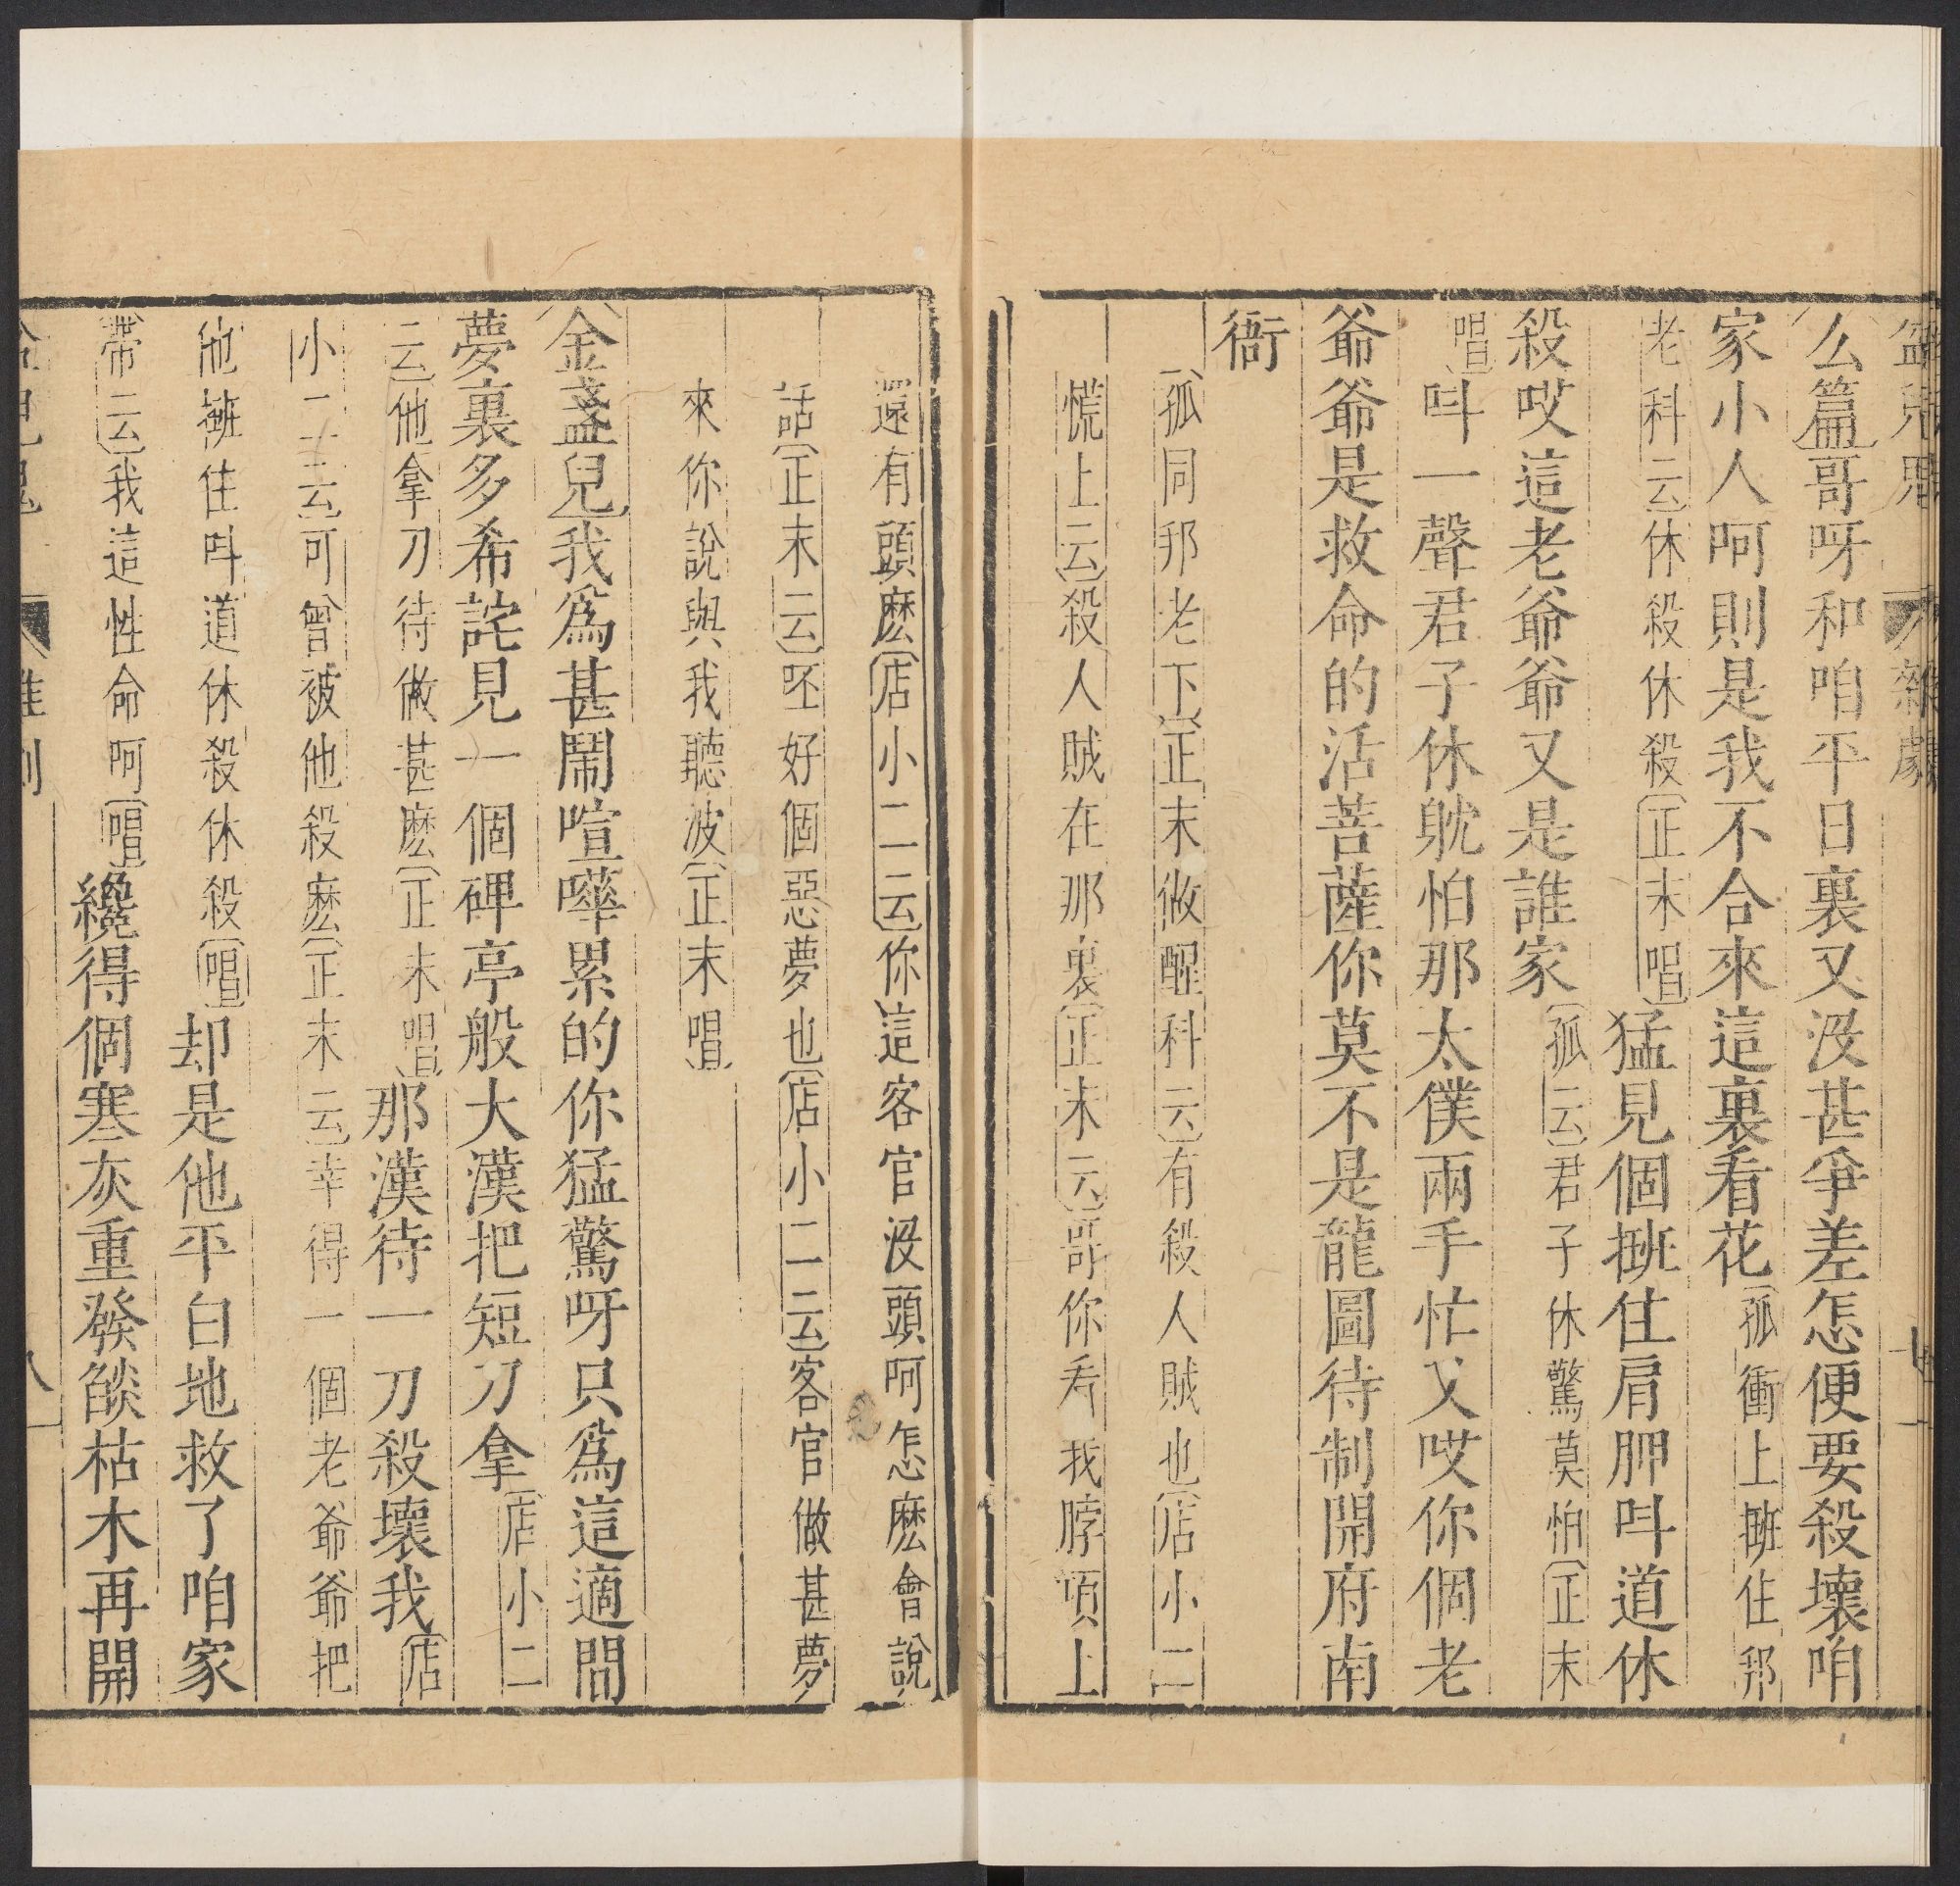 盆兒鬼 雜劇 七
么篇哥呀和咱平日裏又沒甚爭差怎便要殺壞咱
家小人呵則是我不合來這裏看花孤衝上㧳住邦
老科云休殺休殺正末唱猛見個㧳住肩胛呌道休
殺哎這老爺爺又是誰家孤云君子休驚莫怕正末
唱呌一聲君子休躭怕那太僕兩手忙叉哎你個老
爺爺是救命的活菩薩你莫不是龍圖待制開府南
衙
孤同邦老下正末做醒科云有殺人賊也店小二
慌上云殺人賊在那裏正末云哥你看我脖項上
還有頭麽店小二云你這客官沒頭呵怎麽會說
話正末云呸好個惡夢也店小二云客官做甚夢
來你說與我聽波正末唱
金盞兒我爲甚鬧喧嘩累的你猛驚呀只爲這適間
夢裏多希詫見一個碑亭般大漢把短刀拿店小二
云他拿刀待做甚麽正末唱那漢待一刀殺壞我店
小二云可曾被他殺麽正末云幸得一個老爺爺把
他㧳住呌道休殺休殺唱却是他平白地救了咱家
帶云我這性命呵唱纔得個寒灰重發燄枯木再開
八